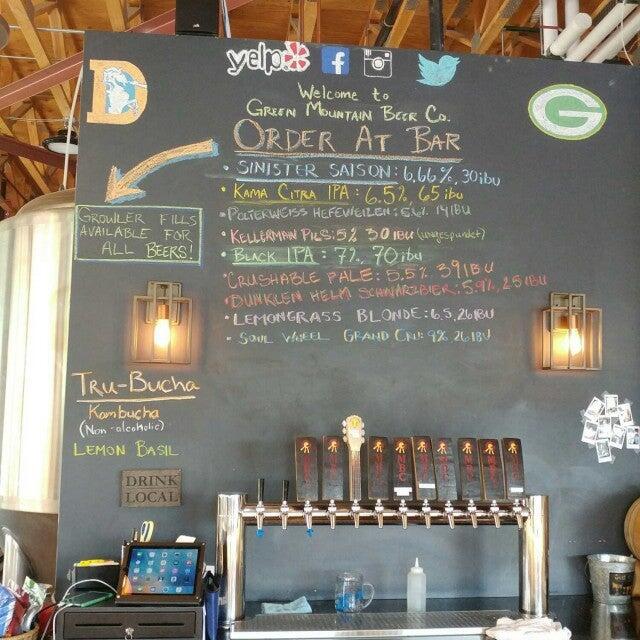 yelp
f
D
G
Welcome to
Green Mountain Beer Co.
ORDER AT BAR
• SINISTER SAISON: 6.66%, 30ibu
• KAMA CITRA IPA: 6.5%, 65ibu
• POLTERWEISS HEFEWEIZEN: 5.6% 14IBU
• KELLERMAN PILS: 5% 30IBU (ungespundet)
• BLACK IPA: 7%, 70ibu
• CRUSHABLE PALE: 5.5% 39IBU
• DUNKLEN HELM SCHWARZBIER: 5.9%, 25IBU
• LEMONGRASS BLONDE: 6.5, 26IBU
• SOUL WHEEL GRAND CRU: 9% 26IBU
GROWLER FILLS
AVAILABLE FOR
ALL BEERS!
TRU-BUCHA
Kombucha
(Non-alcoholic)
LEMON BASIL
DRINK
LOCAL